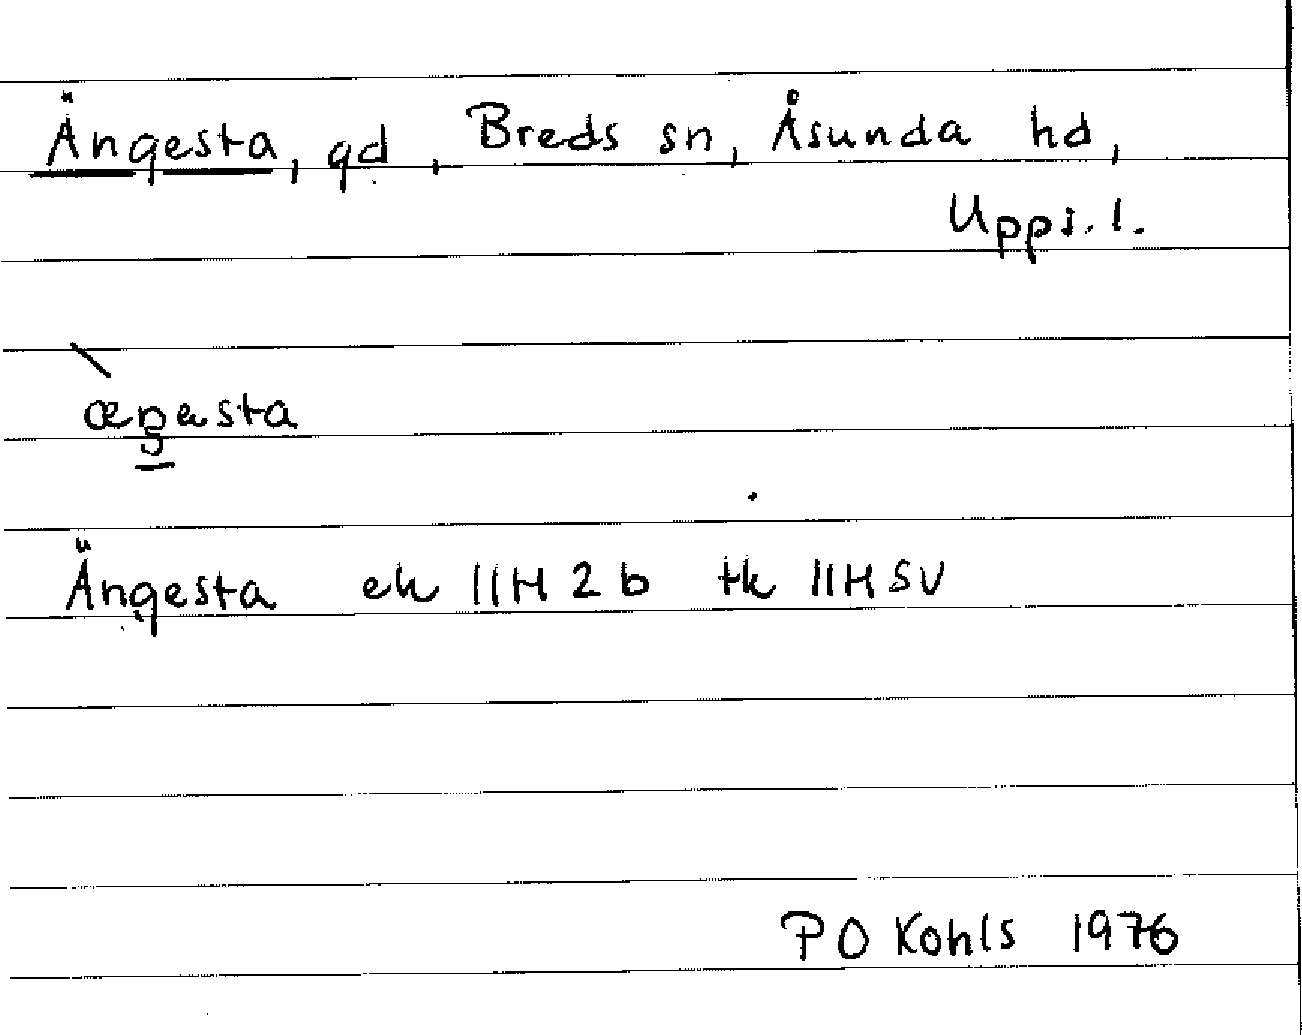 Ängesta, gd, Breds sn, Åsunda hd,
Upps. l.
Ängesta ek 11H 2b tk 11H SV
P O Kohls 1976